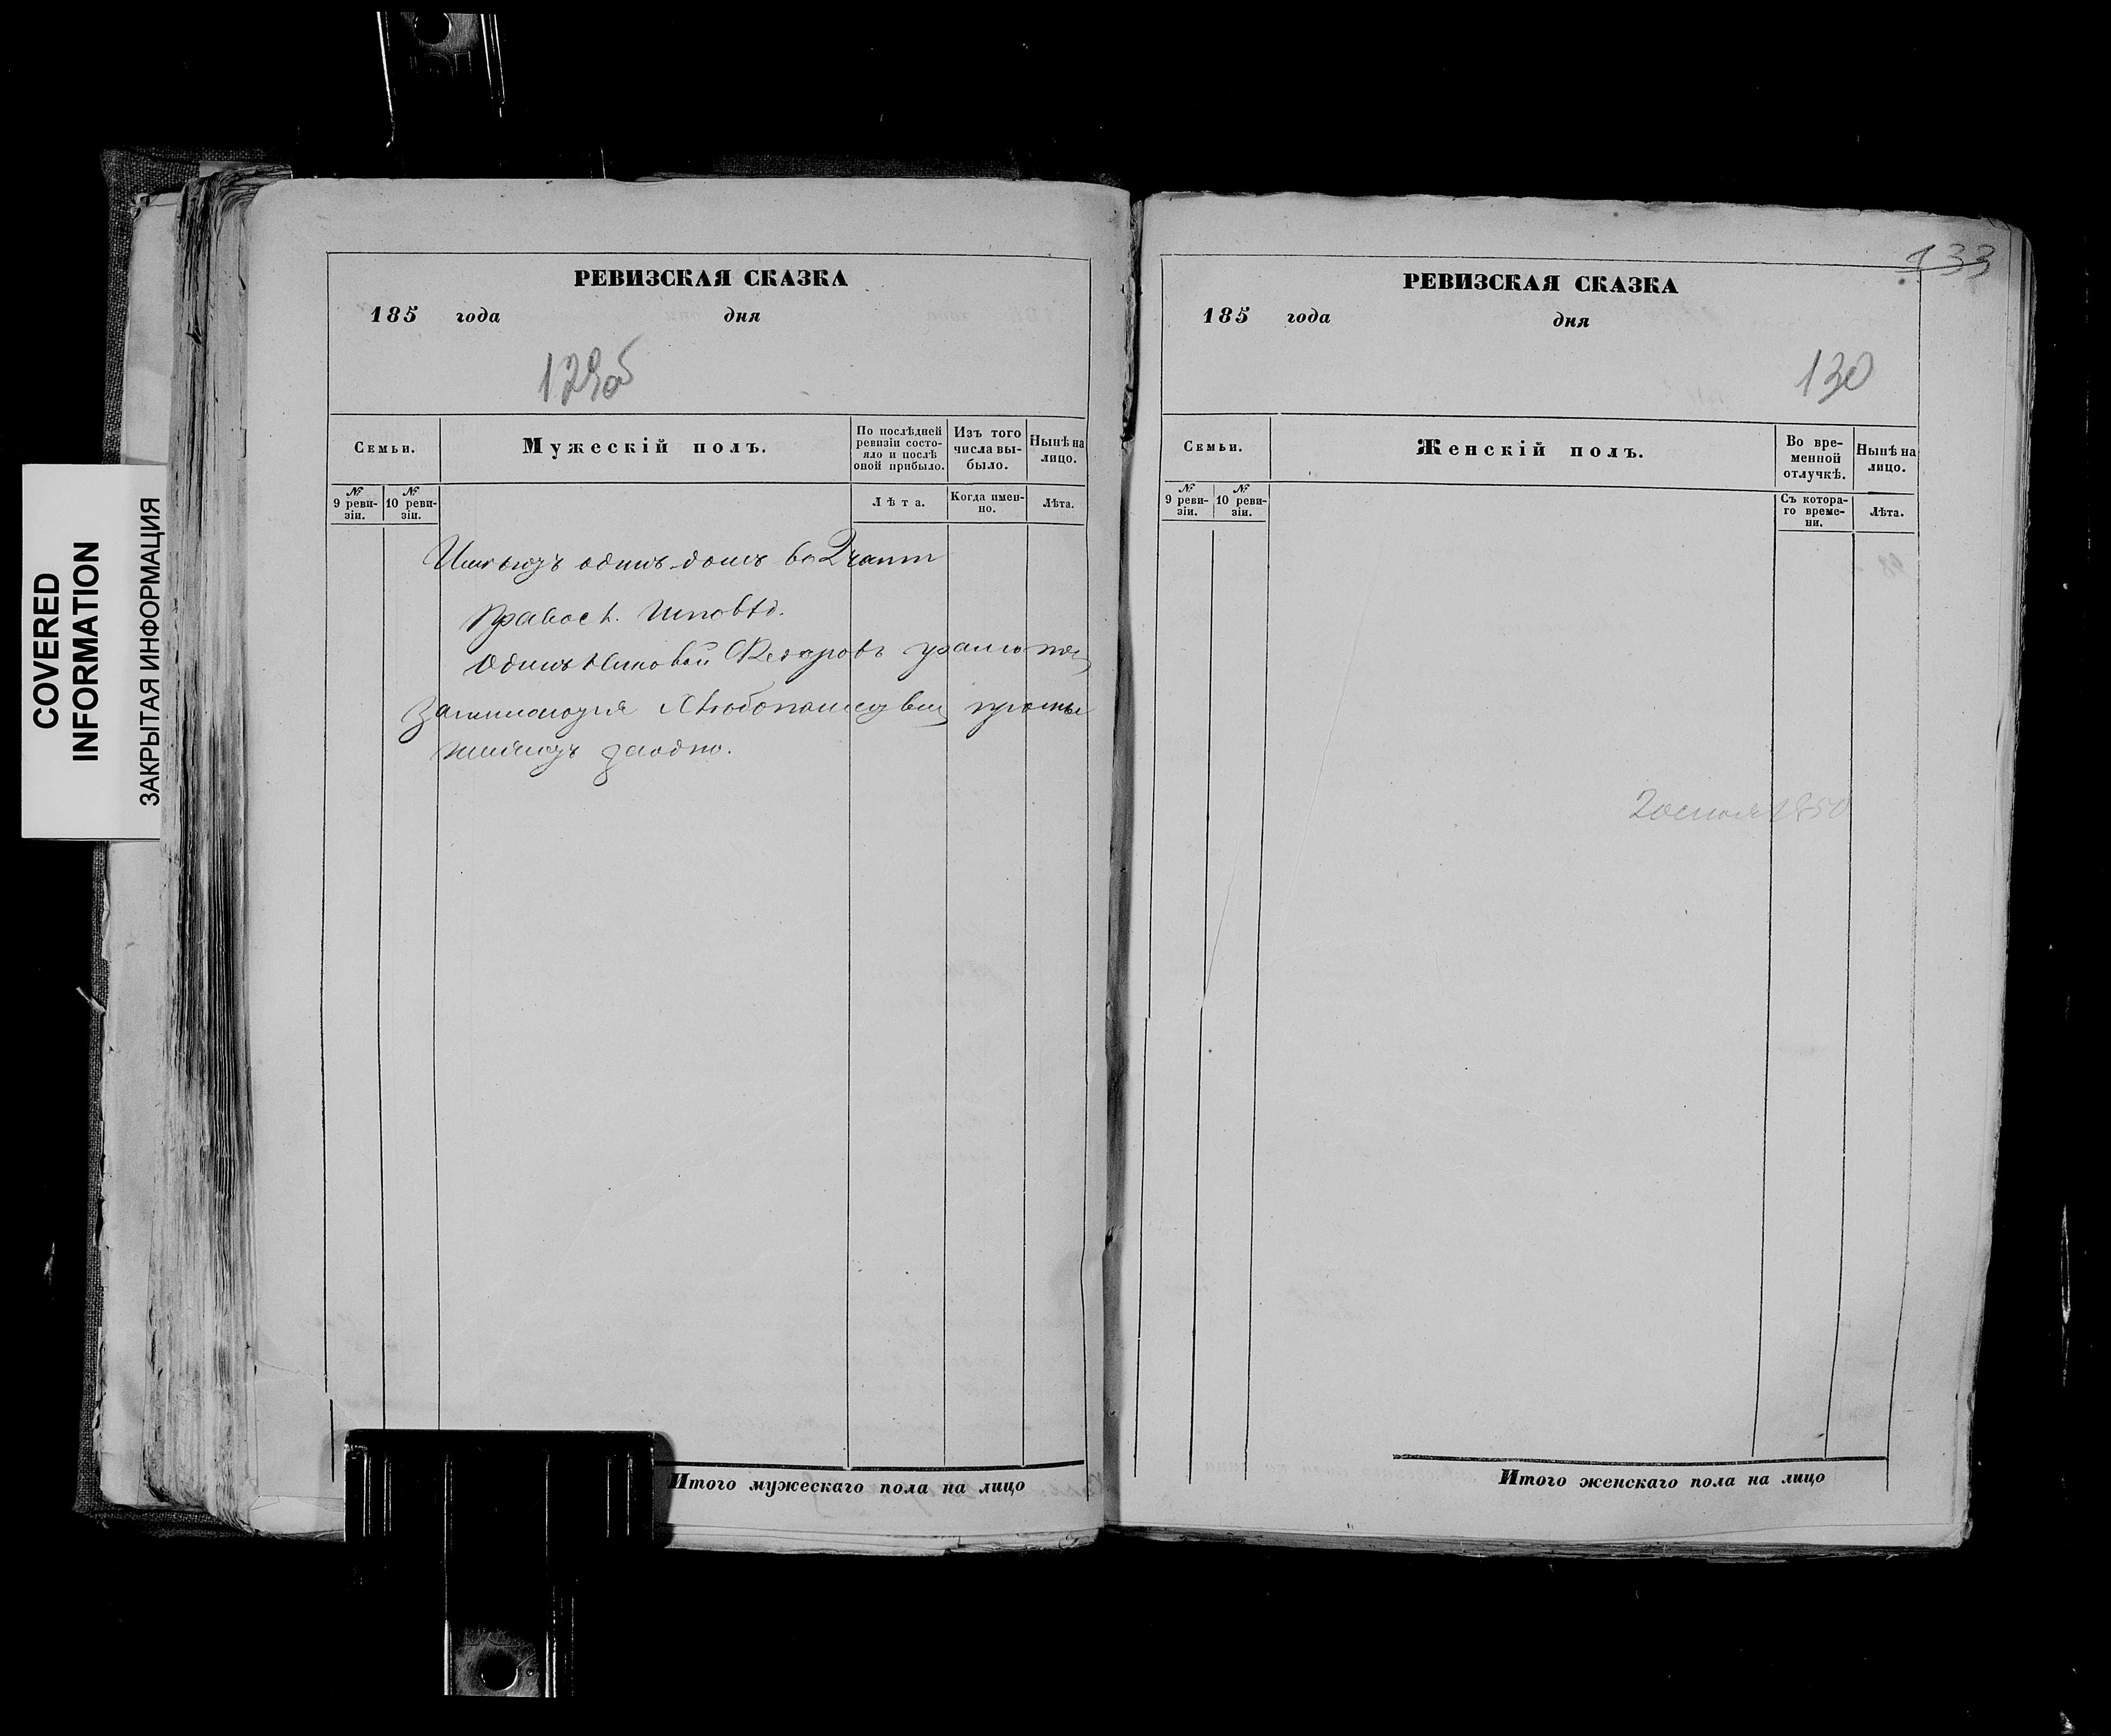 COVERED
INFORMATION
ЗАКРЫТАЯ ИНФОРМАЦИЯ
РЕВИЗСКАЯ СКАЗКА
185 года дня
129об
Семьи.
Мужескій полъ.
По послѣдней
ревизіи состо-
яло и послѣ
оной прибыло.
Изъ того
числа вы-
было.
Нынѣ на
лицо.
№
9 реви-
зіи.
№
10 реви-
зіи.
Лѣта.
Когда имен-
но.
Лѣта.
Имѣютъ одинъ домъ во
Правосл. Исповѣд.
Одинъ
заодно.
Итого мужескаго пола на лицо
133
РЕВИЗСКАЯ СКАЗКА
185 года дня
130
Семьи.
Женскій полъ.
Во вре-
менной
отлучкѣ.
Нынѣ на
лицо.
№
9 реви-
зіи.
№
10 реви-
зіи.
Съ котора-
го време-
ни.
Лѣта.
1850
Итого женскаго пола на лицо